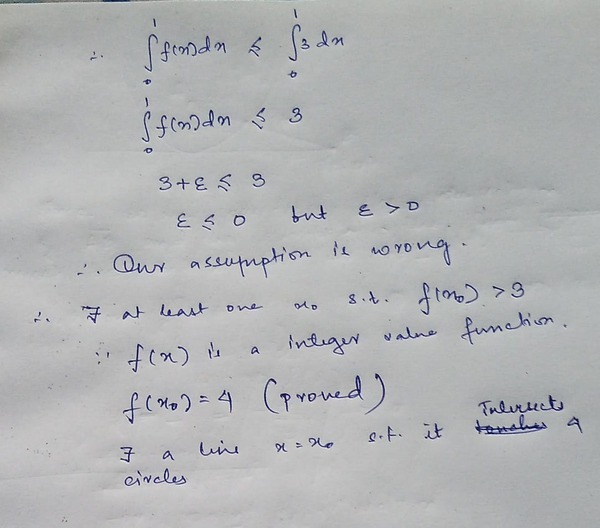 ∴ ∫₀¹ f(x)dx ≤ ∫₀¹ 3 dx
∫₀¹ f(x)dx ≤ 3
3+ε ≤ 3
ε ≤ 0 but ε > 0
∴ Our assumption is wrong.
∴ ∃ at least one x₀ s.t. f(x₀) > 3
∵ f(x) is a integer value function.
f(x₀) = 4 (proved)
∃ a line x = x₀ s.t. it intersects 4
circles